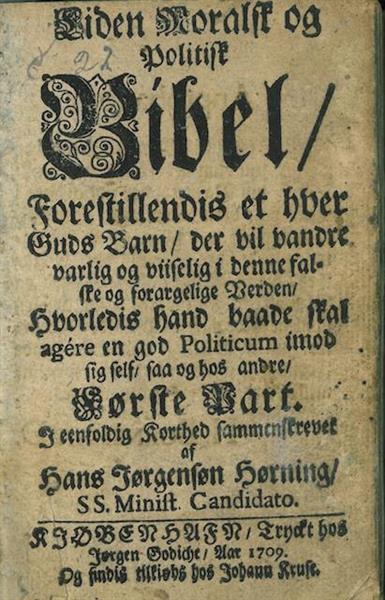 Liden Moralsk og
22
Politisk
Bibel/
Forestillendis et hver
Guds Barn/ der vil vandre
varlig og viiselig i denne fal-
ske og forargelige Verden/
Hvorledis hand baade skal
agére en god Politicum imod
sig self/ saa og hos andre/
Første Part.
I eenfoldig Korthed sammenskrevet
af
Hans Jørgensøn Hørning/
SS. Minist. Candidato.
KIØBENHAFN/ Tryckt hos
Jørgen Godiche/ Aar 1709.
Og findis tilkiøbs hos Johann Kruse.